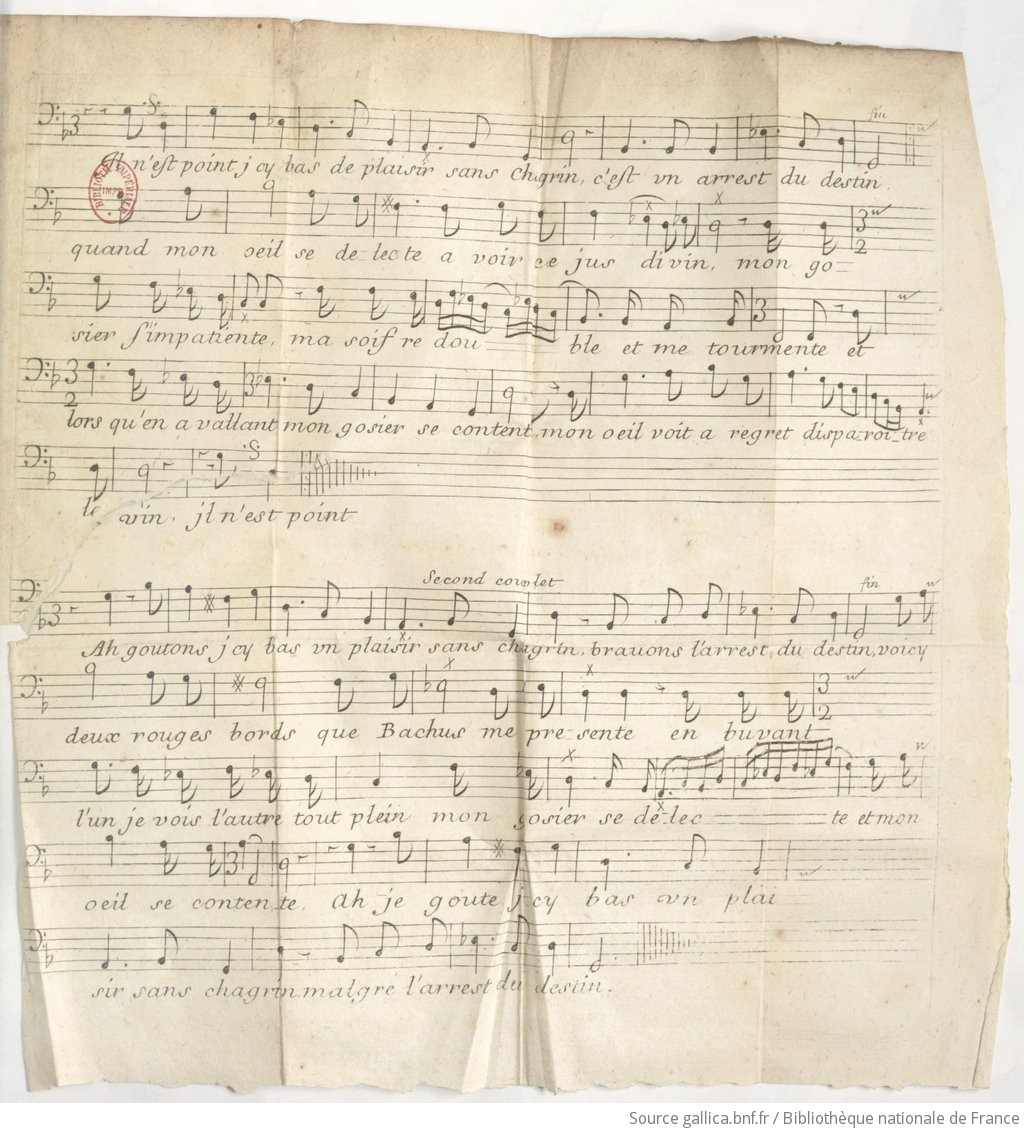 fin
Il n'est point jcy bas de plaisir sans Chagrin, c'est vn arrest du destin.
BIBLIOTH. IMPERIALE
IMP.
quand mon oeil se delecte a voir ce jus divin, mon go
3
2
sier s'impatiente, ma soif re dou ble et me tourmente et
3
3
2
3
lors qu'en a vallant mon gosier se content, mon oeil voit a regret disparoitre
le vin. jl n'est point
Second couplet
fin
3
Ah goutons jcy bas vn plaisir sans chagrin, brauons l'arrest du destin, voicy
3
2
deux rouges bords que Bachus me presente en buvant
l'un je vois l'autre tout plein mon gosier se delec te et mon
3
oeil se contente. Ah je goute jcy bas vn plai
sir sans chagrin malgre l'arrest du destin.
Source gallica.bnf.fr / Bibliothèque nationale de France